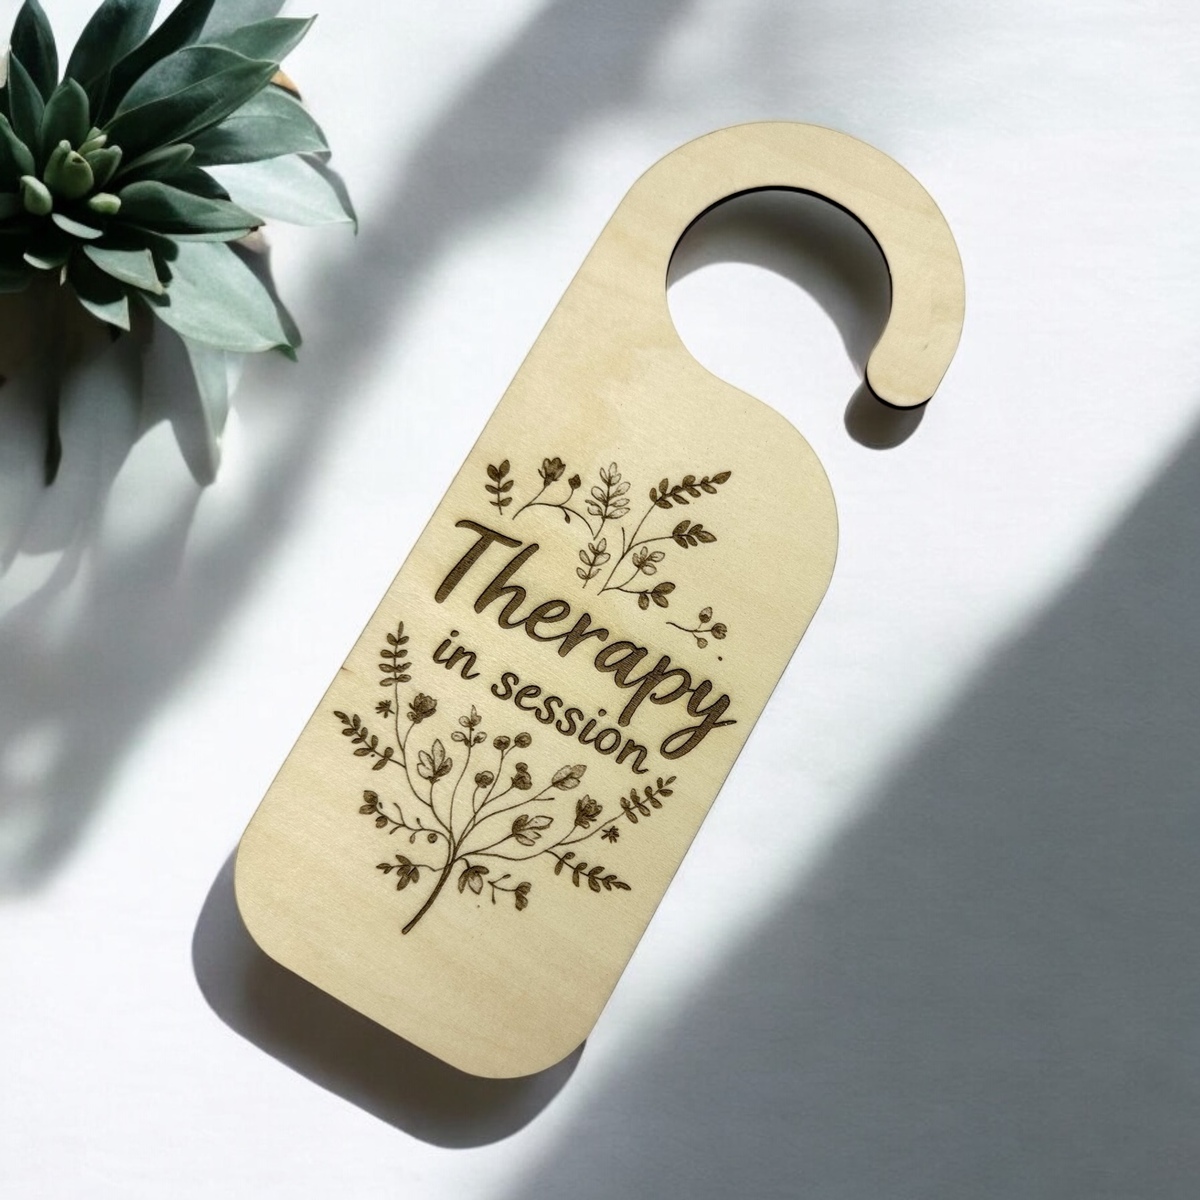 Therapy
in session